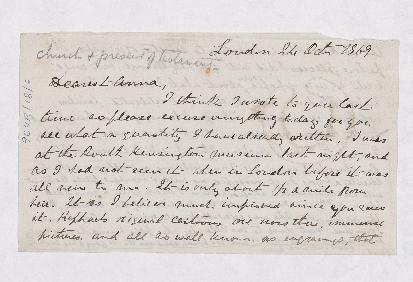 London 24 Oct 1869
church & present of testament
Dearest Anna,
I think I wrote to you last
time so please excuse my to day for you
see what a quantity I have already written. I was
at the South Kensington Museum last night, and
as I had not seen it when in London before it was
all new to me. It is only about ½ a mile from
here. It is I believe much improved since you saw
it. Raphael's original cartoons are now there, immense
pictures and all so well known as engravings, that